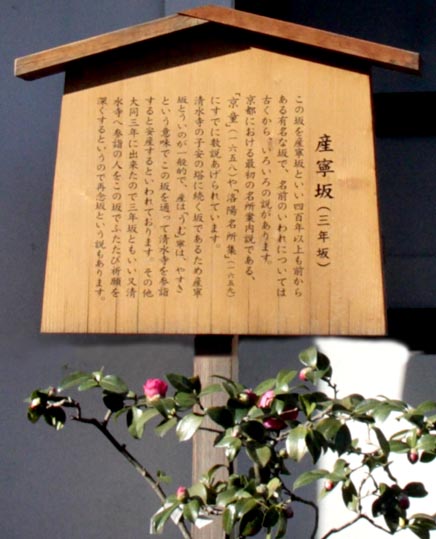 産寧坂(三年坂)
この坂を産寧坂といい四百年以上も前から
ある有名な坂で、名前のいわれについては
古くからいろいろの説があります。
京都における最初の名所案内説である、
「京童」(一六五八)や、「洛陽名所集」(一六五九)
にすでに数説あげられています。
清水寺の子安の塔に続く坂であるため産寧
坂とういのが一般的で、産は、うむ、寧は、やすき
という意味でこの坂を通って清水寺を参詣
すると安産するといわれております。その他
大同三年に出来たので三年坂ともいい又清
水寺へ参詣の人をこの坂でふたたび祈願を
深くするというので再念坂という説もあります。